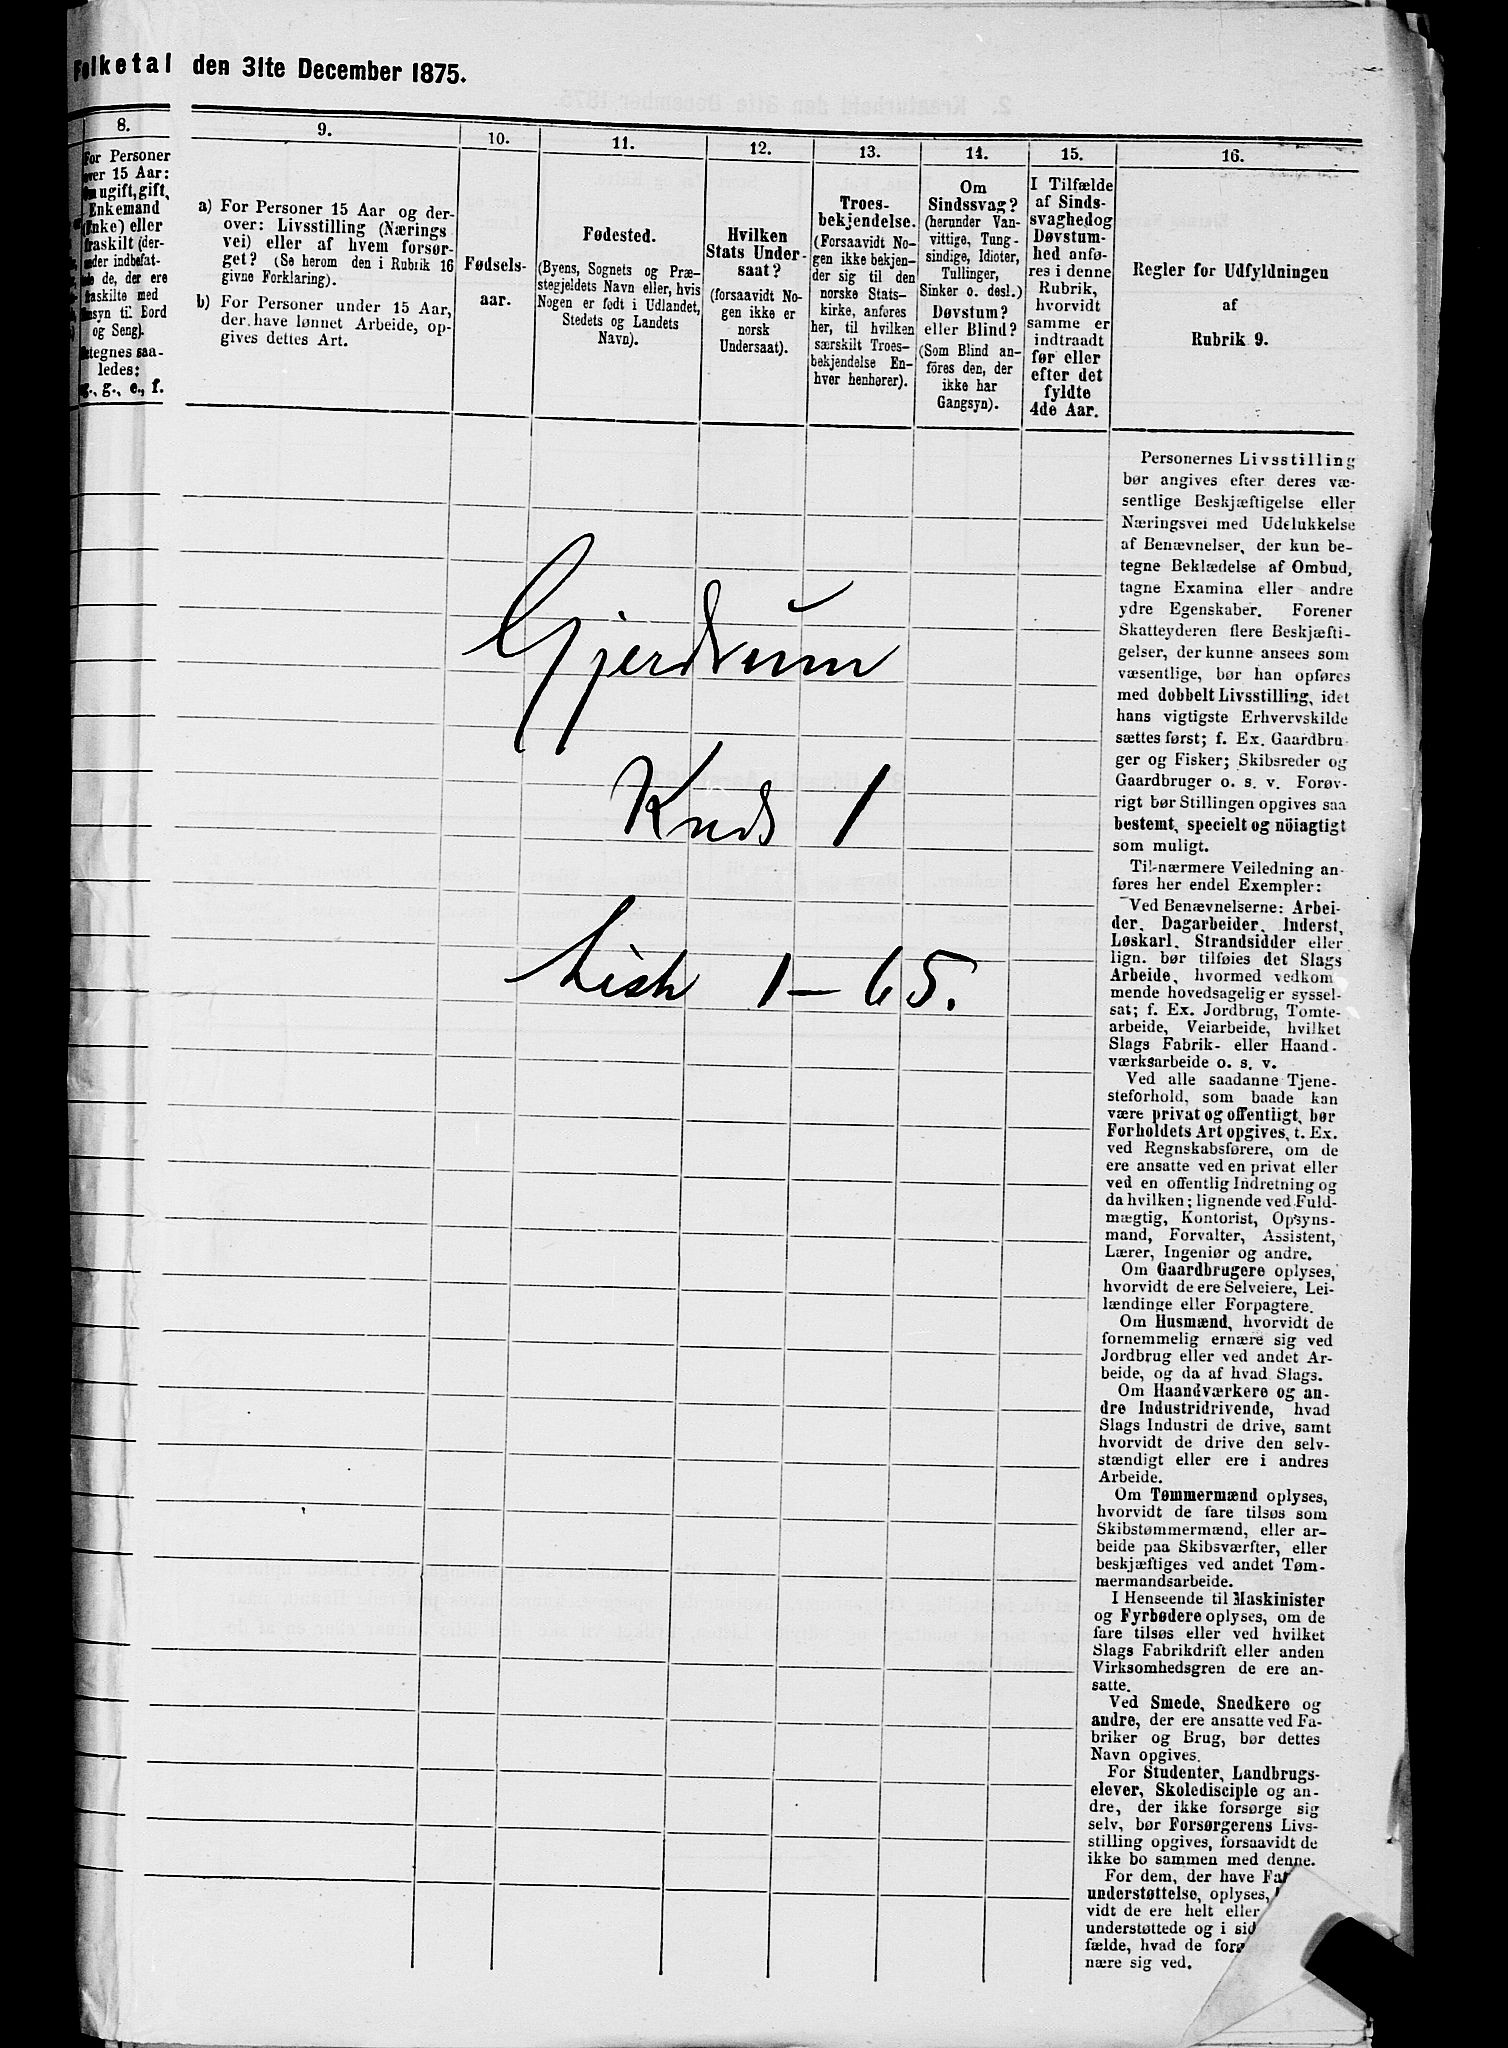 Folketal den 31te December 1875.
8.
For Personer
over 15 Aar:
Om ugift, gift,
Enkemand
(Enke) eller
fraskilt (der-
under indbefat-
tede de, der ere
fraskilte med
Hensyn til Bord
og Seng).
Betegnes saa-
ledes:
ug., g., e., f.
9.
a) For Personer 15 Aar og der-
over: Livsstilling (Nærings
vei) eller af hvem forsør-
get? (Se herom den i Rubrik 16
givne Forklaring).
b) For Personer under 15 Aar,
der have lønnet Arbeide, op-
gives dettes Art.
10.
Fødsels-
aar.
11.
Fødested.
(Byens, Sognets og Præ-
stegjeldets Navn eller, hvis
Nogen er født i Udlandet,
Stedets og Landets
Navn).
12.
Hvilken
Stats Under-
saat?
(forsaavidt No-
gen ikke er
norsk
Undersaat).
13.
Troes-
bekjendelse.
(Forsaavidt No-
gen ikke bekjen-
der sig til den
norske Stats-
kirke, anføres
her, til hvilken
særskilt Troes-
bekjendelse En-
hver henhører).
14.
Om
Sindssvag?
(herunder Van-
vittige, Tung-
sindige, Idioter,
Tullinger,
Sinker o. desl.)
Døvstum?
eller Blind?
(Som Blind an-
føres den, der
ikke har
Gangsyn).
15.
I Tilfælde
af Sinds-
svaghed og
Døvstum-
hed anfø-
res i denne
Rubrik,
hvorvidt
samme er
indtraadt
før eller
efter det
fyldte
4de Aar.
16.
Regler for Udfyldningen
af
Rubrik 9.
Gjerdrum
Kreds 1
Liste 1 – 65.
Personernes Livsstilling
bør angives efter deres væ-
sentlige Beskjæftigelse eller
Næringsvei med Udelukkelse
af Benævnelser, der kun be-
tegne Beklædelse af Ombud,
tagne Examina eller andre
ydre Egenskaber. Forener
Skatteyderen flere Beskjæfti-
gelser, der kunne ansees som
væsentlige, bør han opføres
med dobbelt Livsstilling, idet
hans vigtigste Erhvervskilde
sættes først; f. Ex. Gaardbru
ger og Fisker; Skibsreder og
Gaardbruger o. s. v. Forøv-
rigt bør Stillingen opgives saa
bestemt, specielt og nöiagtigt
som muligt.
Til nærmere Veiledning an-
føres her endel Exempler:
Ved Benævnelserne: Arbei-
der, Dagarbeider, Inderst,
Løskarl, Strandsidder eller
lign. bør tilføies det Slags
Arbeide, hvormed vedkom
mende hovedsagelig er syssel-
sat; f. Ex. Jordbrug, Tomte-
arbeide, Veiarbeide, hvilket
Slags Fabrik- eller Haand-
værksarbeide o. s. v.
Ved alle saadanne Tjene-
steforhold, som baade kan
være privat og offentligt, bør
Forholdets Art opgives, t. Ex.
ved Regnskabsførere, om de
ere ansatte ved en privat eller
ved en offentlig Indretning og
da hvilken; lignende ved Fuld-
mægtig, Kontorist, Opsyns-
mand, Forvalter, Assistent,
Lærer, Ingeniør og andre.
Om Gaardbrugere oplyses,
hvorvidt de ere Selveiere, Lei-
lændinge eller Forpagtere.
Om Husmænd, hvorvidt de
fornemmelig ernære sig ved
Jordbrug eller ved andet Ar-
beide, og da af hvad Slags.
Om Haandværkere og an-
dre Industridrivende, hvad
Slags Industri de drive, samt
hvorvidt de drive den selv-
stændigt eller ere i andres
Arbeide.
Om Tømmermænd oplyses,
hvorvidt de fare tilsøs som
Skibstømmermænd, eller ar-
beide paa Skibsværfter, eller
beskjæftiges ved andet Tøm-
mermandsarbeide.
I Henseende til Maskinister
og Fyrbødere oplyses, om de
fare tilsøs eller ved hvilket
Slags Fabrikdrift eller anden
Virksomhedsgren de ere an-
satte.
Ved Smede, Snedkere og
andre, der ere ansatte ved Fa-
briker og Brug, bør dettes
Navn opgives.
For Studenter, Landbrugs-
elever, Skoledisciple og an-
dre, der ikke forsørge sig
selv, bør Forsørgerens Livs-
stilling opgives, forsaavidt de
ikke bo sammen med denne.
For dem, der have Fat
understøttelse, oplyses,
vidt de ere helt eller
understøttede og i sid
fælde, hvad de forø
nære sig ved.